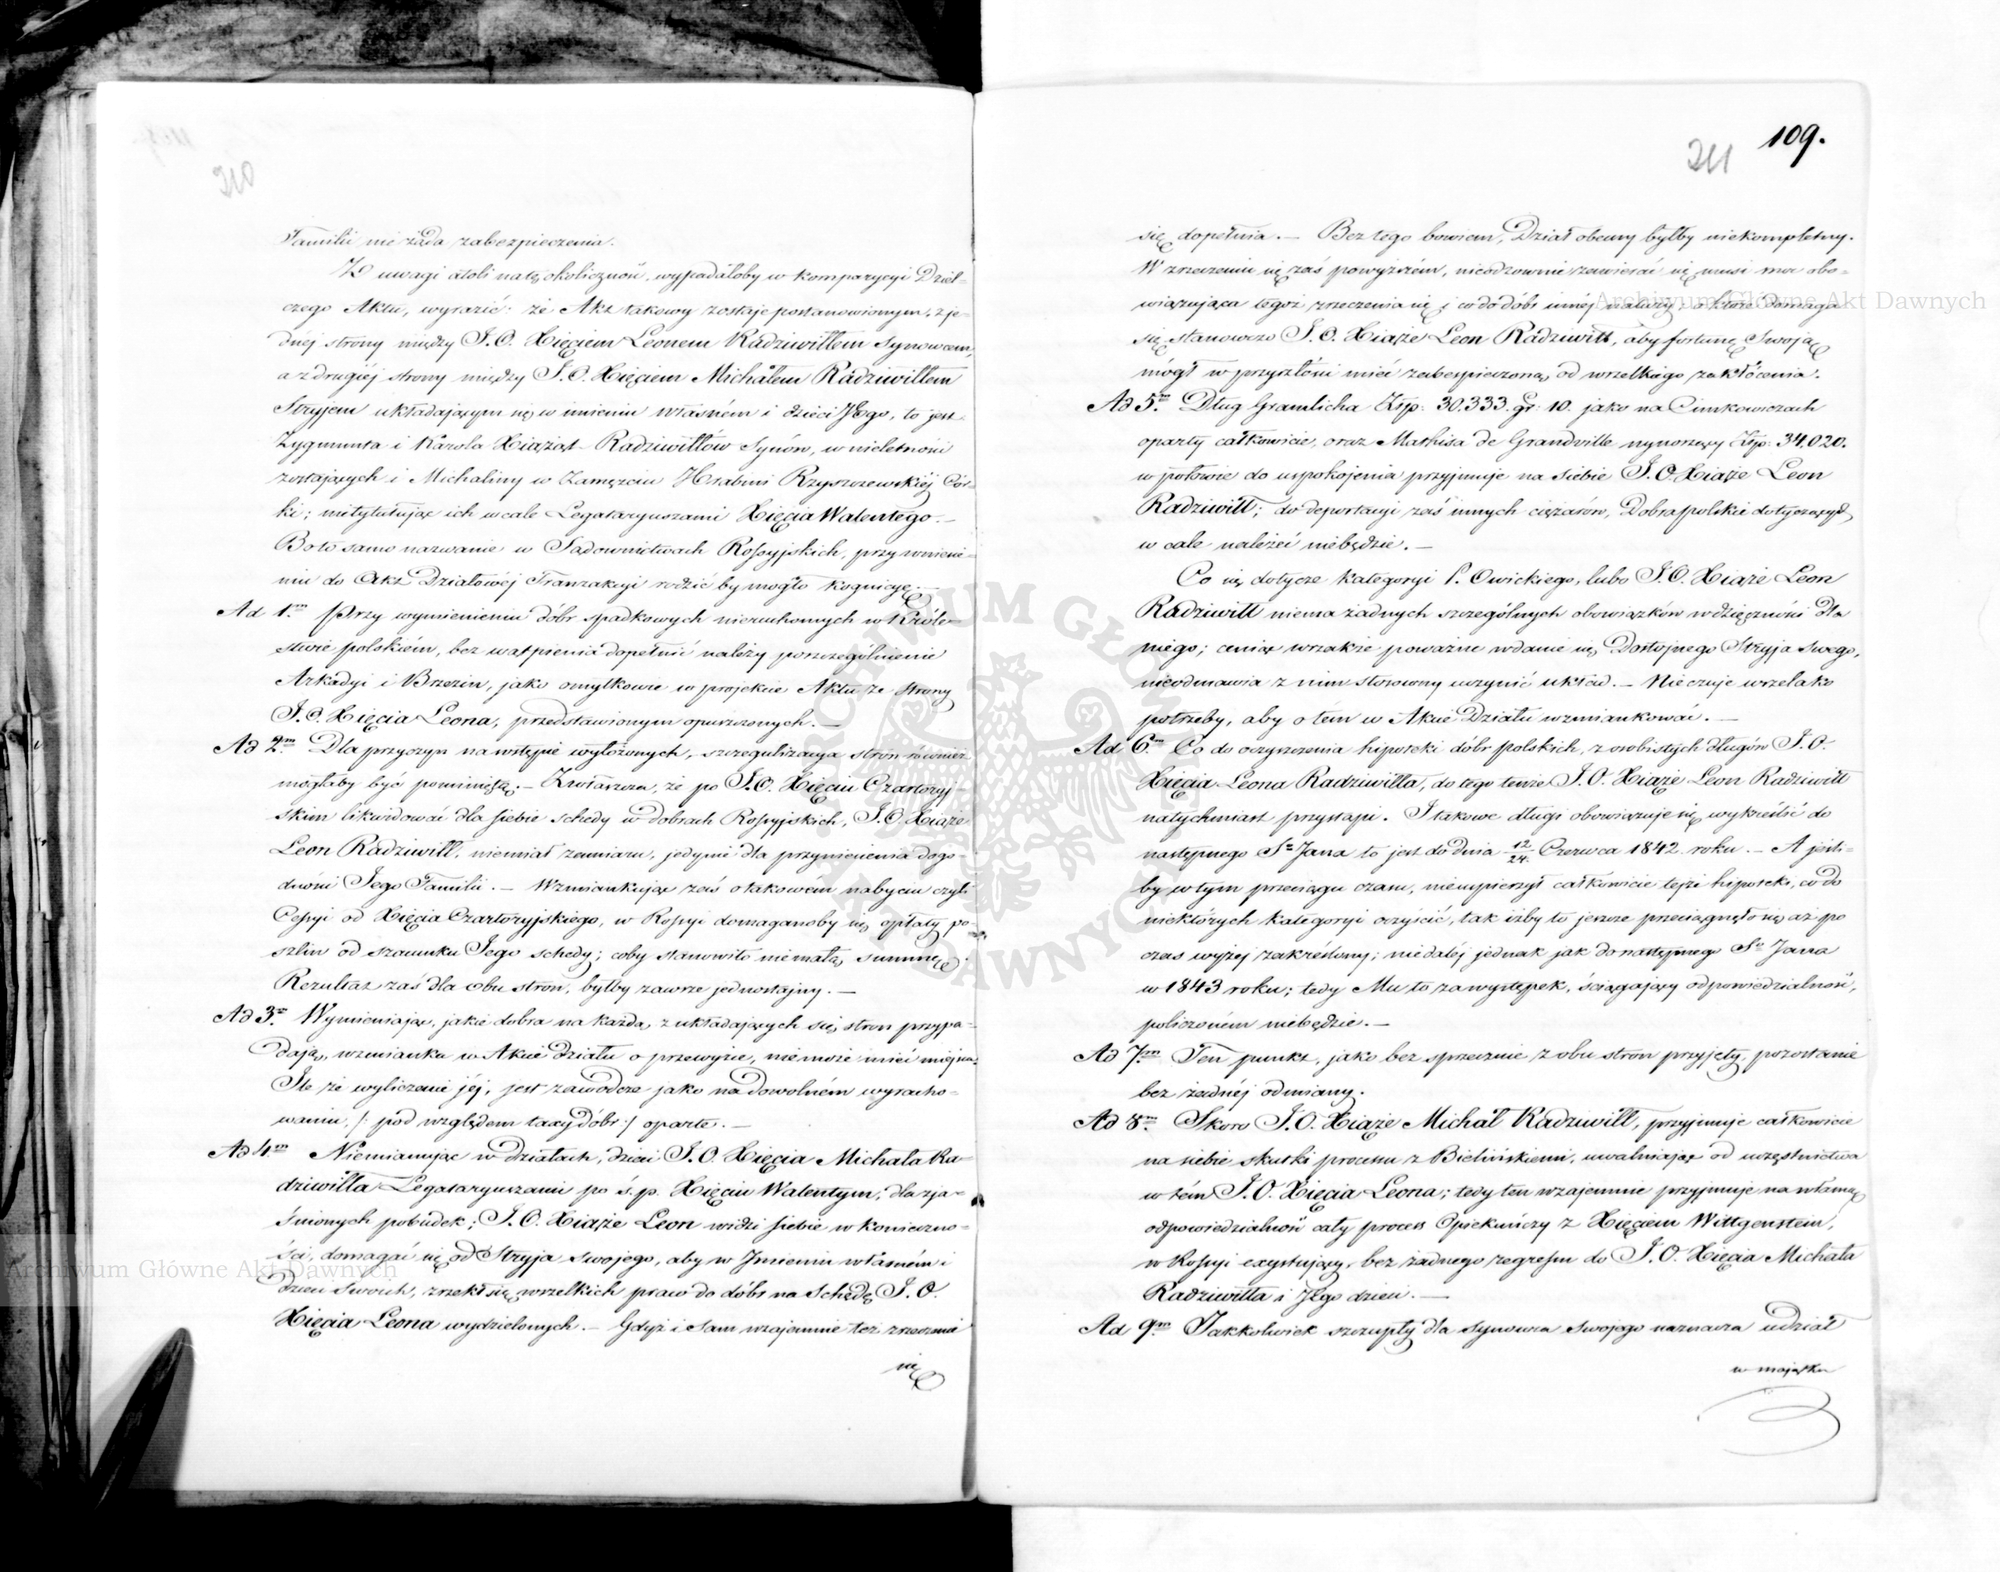 210
Familii nie żąda zabezpieczenia.
Z uwagi atoli na tę okoliczność, wypadałoby w komparycyi Dział-
czego Aktu, wyrazić: że Akt takowy zostaje postanowionym, z je-
dnéj strony między J.O. Xięciem Leonem Radziwiłłem Synowcem,
a z drugiéj strony między J.O. Xięciem Michałem Radziwiłłem
Stryjem układającym się w imieniu własném i dzieci Jego, to jest
Zygmunta i Karola Xiążąt Radziwiłłów Synów, w nieletności
zostających i Michaliny w Zamęzciu Hrabini Rzyszczewskiéj Cór-
ki; nietytułując ich wcale Legataryuszami Xięcia Walentego. —
Bo to samo nazwanie w Sądownictwach Rossyjskich, przy wniesie-
niu do Akt Działowéj Tranzakcyi rodzić by mogło kognicyę. —
Ad 1m. Przy wymienieniu dóbr spadkowych nieruchomych w Króle-
stwie polskiém, bez wątpienia dopełnić należy poszczególnienie
Arkadyi i Brzezin, jako omyłkowie w projekcie Aktu ze strony
J.O. Xięcia Leona, przedstawionym opuszczonych. —
Ad 2m. Dla przyczyn na wstępie wyłożonych, szczegulizacya stron również
mogłaby być pominiętą. — Zwłaszcza, że po J.O. Xięciu Czartoryj-
skim likwidować dla siebie schedy w dobrach Rossyjskich, J.O. Xiąże
Leon Radziwiłł, niemiał zamiaru, jedynie dla przyniesienia dogo-
dności Jego Familii. — Wzmiankując zaś o takowém nabyciu czyli
Cessyi od Xięcia Czartoryjskiego, w Rossyi domaganoby się opłaty po-
szlin od szacunku Jego schedy; coby stanowiło niemałą summę.
Rezultat zaś dla obu stron, byłby zawsze jednostajny. —
Ad 3m. Wymieniając, jakie dobra na każdą z układających się stron przypa-
dają, wzmianka w Akcie działu o przewyżce, niemoże mieć miejsca.
Ile że wyliczenie jéj, jest zawodcze jako na dowolném wyracho-
waniu, /: pod względem taxy dóbr :/ oparte. —
Ad 4m. Niemianując w działach, dzieci J.O. Xięcia Michała Ra-
dziwiłła Legataryuszami po ś.p. Xięciu Walentym, dla zja-
śnionych pobudek; J.O. Xiąże Leon widzi siebie w konieczno-
ści, domagać się od Stryja swojego, aby w Imieniu własném i
dzieci swoich, zrzekł się wszelkich praw do dóbr na Schedę J.O.
Xięcia Leona wydzielonych. — Gdyż i Sam wzajemnie też zrzeczenie
się
211
109.
się dopełnia. — Bez tego bowiem, Dział obecny byłby niekompletny.
W zrzeczeniu się zaś powyższém, nieodzownie zawierać się musi moc obo-
wiązująca tegoż zrzeczenia się i co do dóbr innéj natury, o które domaga
się stanowczo J.O. Xiąże Leon Radziwiłł, aby fortunę Swoją
mógł w przyszłości mieć zabezpieczoną od wszelkiego zakłócenia.
Ad 5m. Dług Gramlicha Złp: 30.333. gr: 10. jako na Cimkowiczach
oparty całkowicie, oraz Mathisa de Grandville wynoszący Złp: 34.020.
w połowie do uspokojenia przyjmuje na siebie J.O. Xiąże Leon
Radziwiłł; do deportacyi zaś innych ciężarów, Dobra polskie dotyczących,
w cale należeć niebędzie. —
Co się dotycze kategoryi P. Owickiego, lubo J.O. Xiąże Leon
Radziwiłł niema żadnych szczególnych obowiązków wdzięczności dla
niego; ceniąc wszakże poważne wdanie się Dostojnego Stryja swego,
nieodmawia z nim stosowny uczynić układ. — Nie czuje wszelako
potrzeby, aby o tém w Akcie Działu wzmiankować. —
Ad 6m. Co do oczyszczenia hipoteki dóbr polskich, z osobistych długów J.O.
Xięcia Leona Radziwiłła, do tego tenże J.O. Xiąże Leon Radziwiłł
natychmiast przystąpi. I takowe długi obowiązuje się wykreślić do
następnego St Jana to jest do dnia 12/24 Czerwca 1842 roku. — A jeśli-
by w tym przeciągu czasu, nieuspieszył całkowicie tejże hipoteki, co do
niektórych kategoryi oczyścić, tak iżby to jeszcze przeciągnęło się aż po
czas wyżej zakreślony; nie daléj jednak jak do następnego St Jana
w 1843 roku; tedy Mu to za występek, ściągający odpowiedzialność,
policzoném niebędzie. —
Ad 7m. Ten punkt, jako bez sprzecznie z obu stron przyjęty, pozostanie
bez żadnéj odmiany.
Ad 8m. Skoro J.O. Xiąże Michał Radziwiłł, przyjmuje całkowicie
na siebie skutki procesu z Bielińskiemi, uwalniając od uczęstnictwa
w tém J.O. Xięcia Leona; tedy ten wzajemnie przyjmuje na własną
odpowiedzialność cały process Opiekuńczy z Xięciem Wittgenstein,
w Rossyi exystujący, bez żadnego regressu do J.O. Xięcia Michała
Radziwiłła i Jego dzieci. —
Ad 9m. Jakkolwiek szczupły dla synowca swojego naznacza udział
w majątku
Archiwum Główne Akt Dawnych
Archiwum Główne Akt Dawnych
ARCHIWUM GŁÓWNE AKT DAWNYCH